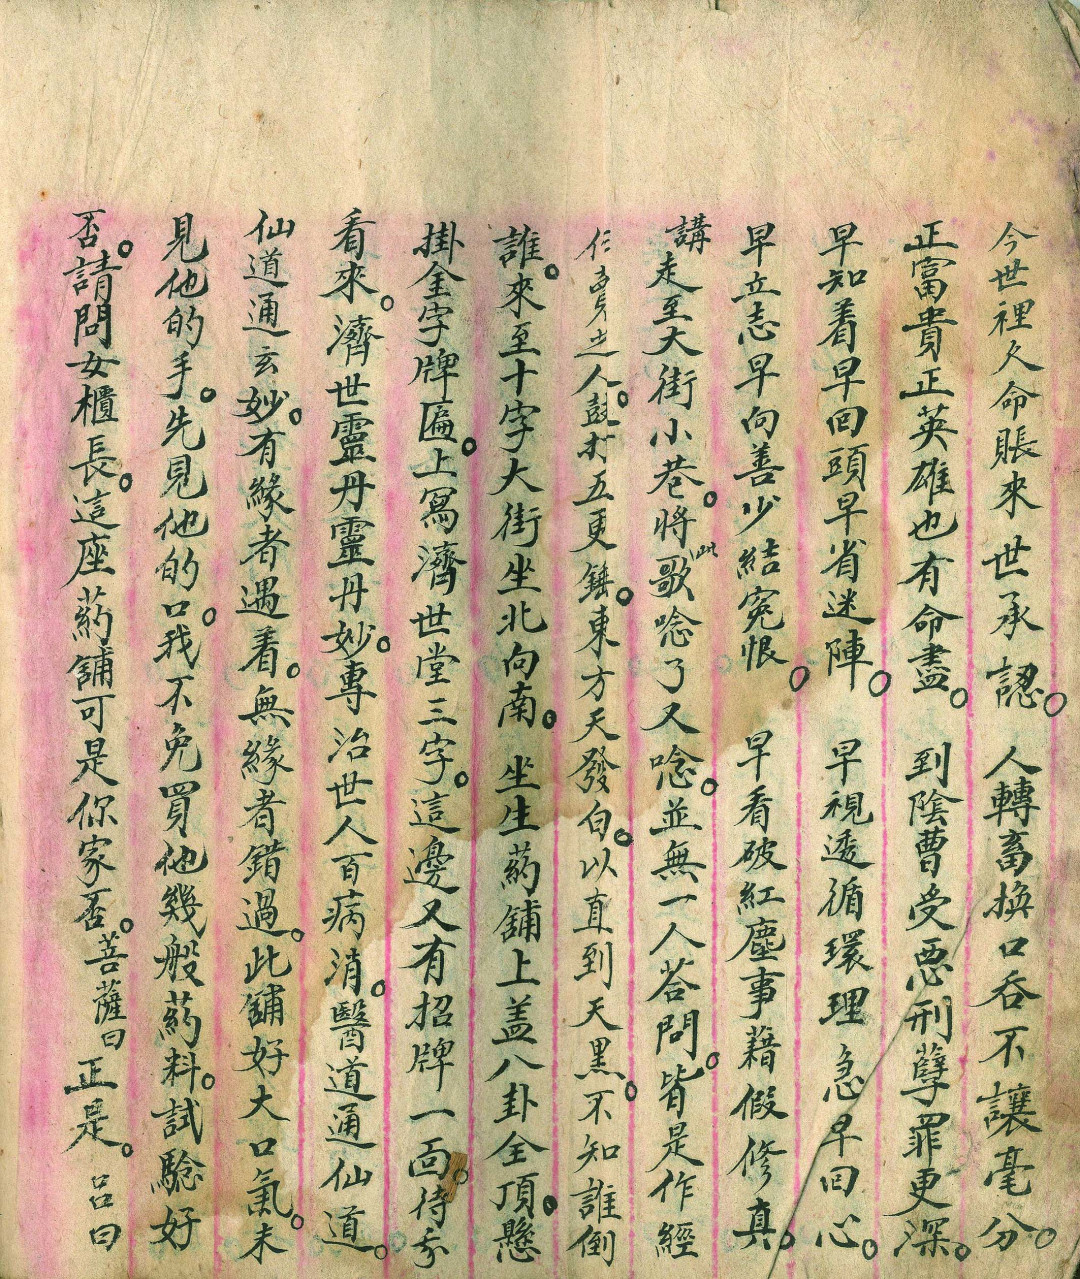 今世裡欠命賬來世承認。人轉畜換口吞不讓毫分。
正富貴正英雄也有命盡。到陰曹受惡刑孽罪更深。
早知着早回頭早省迷陣。早視透循環理急早回心。
早立志早向善少結冤恨。早看破紅塵事藉假修真。
講走至大街小巷。將此歌唸了又唸。並無一人答問。皆是作經
仁賣之人。鼓打五更鍾。東方天發白。以直到天黑。不知誰倒
誰。來至十字大街坐北向南。坐生葯舖上盖八卦全頂。懸
掛金字牌匾。上寫濟世堂三字。這邊又有招牌一面。待我
看來。濟世靈丹靈丹妙。專治世人百病消。醫道通仙道。
仙道通玄妙。有緣者遇着。無緣者錯過。此舖好大口氣。未
見他的手。先見他的口。我不免買他幾般葯料。試驗好
否。請問女櫃長。這座葯舖可是你家否。菩薩曰正是。呂曰